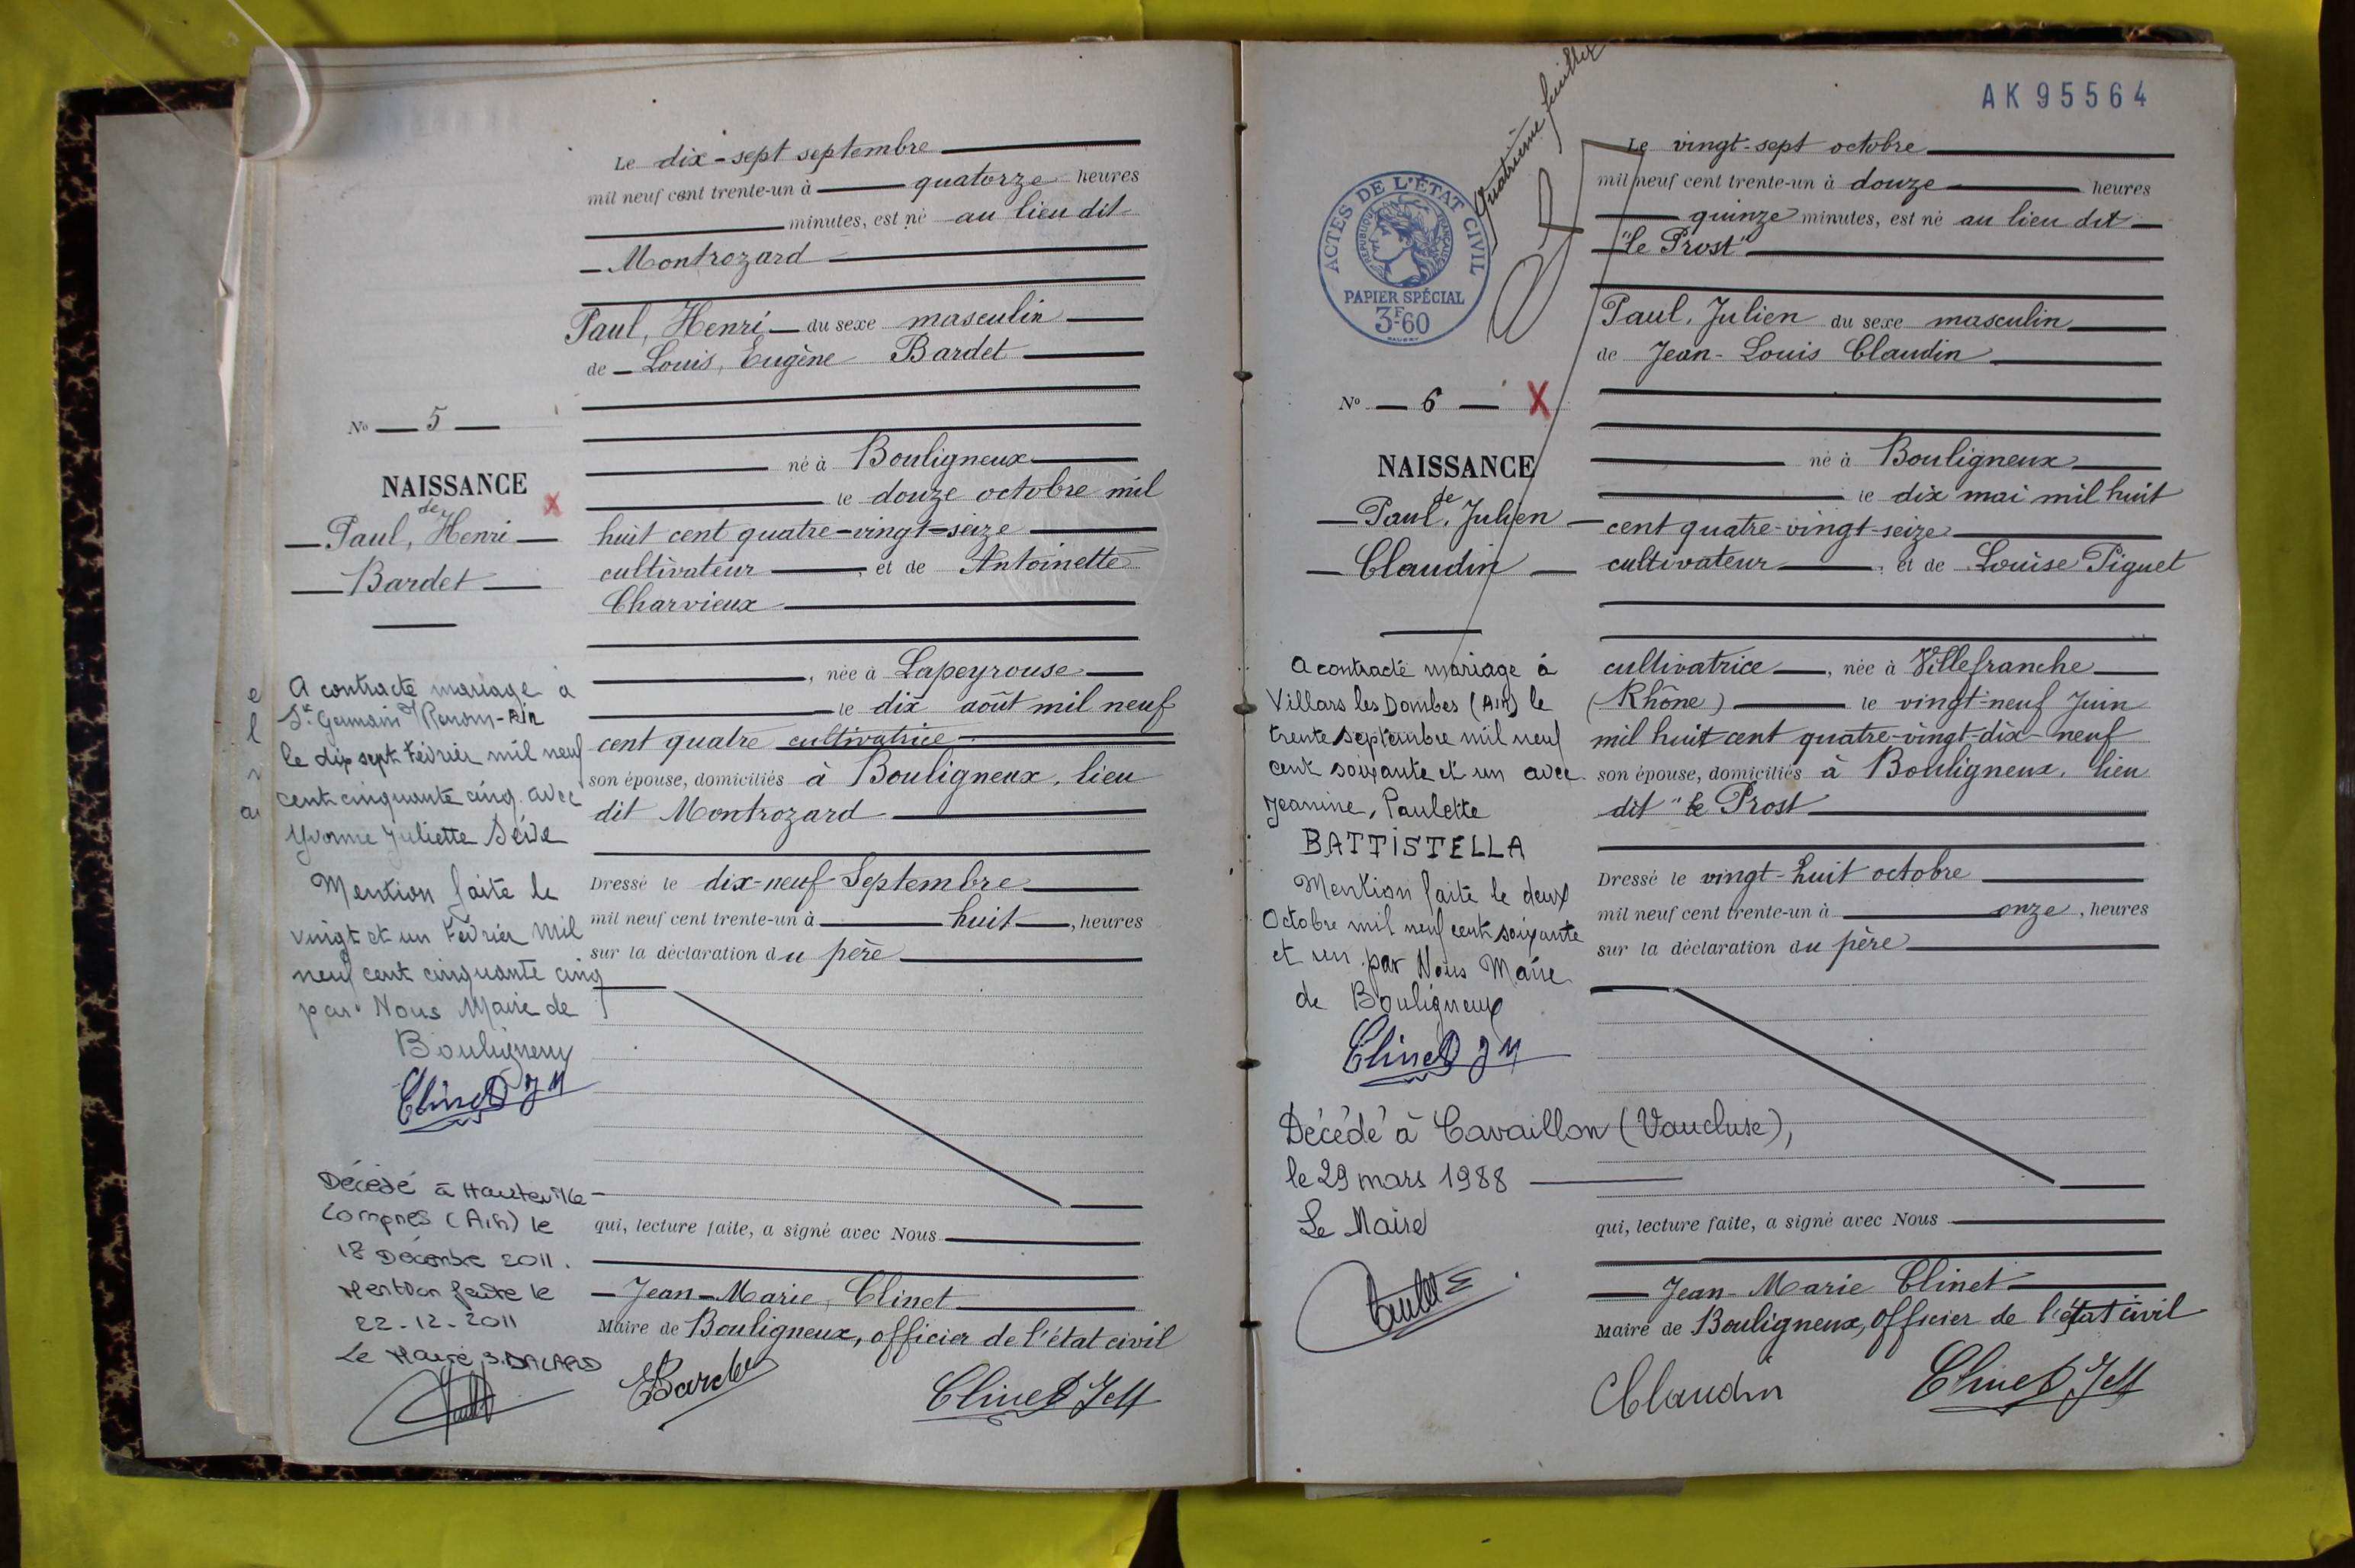 Le dix-sept septembre
mil neuf cent trente-un à quatorze heures
minutes, est né au lieu dit
Montrozard
Paul, Henri du sexe masculin
de Louis, Eugène Bardet
N° 5
né à Bouligneux
NAISSANCE
le douze octobre mil
de
Paul, Henri
huit cent quatre-vingt-seize
Bardet
cultivateur, et de Antoinette
Charvieux
, née à Lapeyrouse
le dix août mil neuf
cent quatre cultivatrice
son épouse, domiciliés à Bouligneux, lieu
dit Montrozard
Dressé le dix-neuf Septembre
mil neuf cent trente-un à huit, heures
sur la déclaration du père
qui, lecture faite, a signé avec Nous
Jean-Marie, Clinet
Maire de Bouligneux, officier de l'état civil
EBardet
Clinet JM
A contracté mariage à
St Germain s/Renom-Ain
le dix sept Février mil neuf
cent cinquante cinq. avec
Yvonne Juliette Sève
Mention faite le
vingt et un Février Mil
neuf cent cinquante cinq
par Nous Maire de
Bouligneux
Clinet JM
Décédé à Hauteville-
Lompnes (Ain) le
18 Décembre 2011.
Mention faite le
22-12-2011
Le Maire
e
l
a
Quatrième feuillet
AK 95564
ACTES DE L'ÉTAT CIVIL
RÉPUBLIQUE FRANÇAISE
PAPIER SPÉCIAL
3F60
Le vingt-sept octobre
mil neuf cent trente-un à douze heures
quinze minutes, est né au lieu dit
"le Prost"
Paul, Julien du sexe masculin
de Jean-Louis Claudin
N° 6 X
né à Bouligneux
NAISSANCE
le dix mai mil huit
de
Paul, Julien
cent quatre-vingt-seize
Claudin
cultivateur, et de Louise Piguet
cultivatrice, née à Villefranche
(Rhône) le vingt-neuf Juin
mil huit cent quatre-vingt-dix-neuf
son épouse, domiciliés à Bouligneux, lieu
dit "le Prost
Dressé le vingt-huit octobre
mil neuf cent trente-un à onze, heures
sur la déclaration du père
qui, lecture faite, a signé avec Nous
Jean-Marie Clinet
Maire de Bouligneux, officier de l'état civil
Claudin
Clinet JM
A contracté mariage à
Villars les Dombes (Ain) le
trente septembre mil neuf
cent soixante et un avec
Jeanine, Paulette
BATTISTELLA
Mention faite le deux
Octobre mil neuf cent soixante
et un par Nous Maire
de Bouligneux
Clinet JM
Décédé à Cavaillon (Vaucluse),
le 29 mars 1988
Le Maire